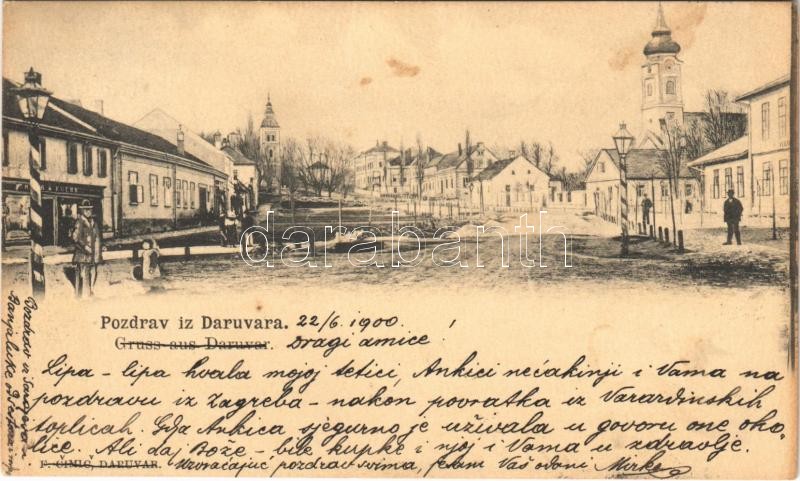 Pozdrav iz Daruvara. 22/6. 1900. !
Gruss aus Daruvar. Dragi amice!
Lipa - lipa hvala mojoj tetici, Ankici nećakinji i Vama na
pozdravu iz Zagreba - nakon povratka iz Varaždinskih
toplicah. Gđa Ankica sjegurno je uživala u govoru one oko-
lice. Ali daj Bože - bile kupke i njoj i Vama u zdravlje.
F. ČIMIĆ, DARUVAR. Uzvraćajuć pozdrav svima, jesam Vaš odani Mirko
Pozdrav iz Sarajeva -
Banjaluke od
darabanth